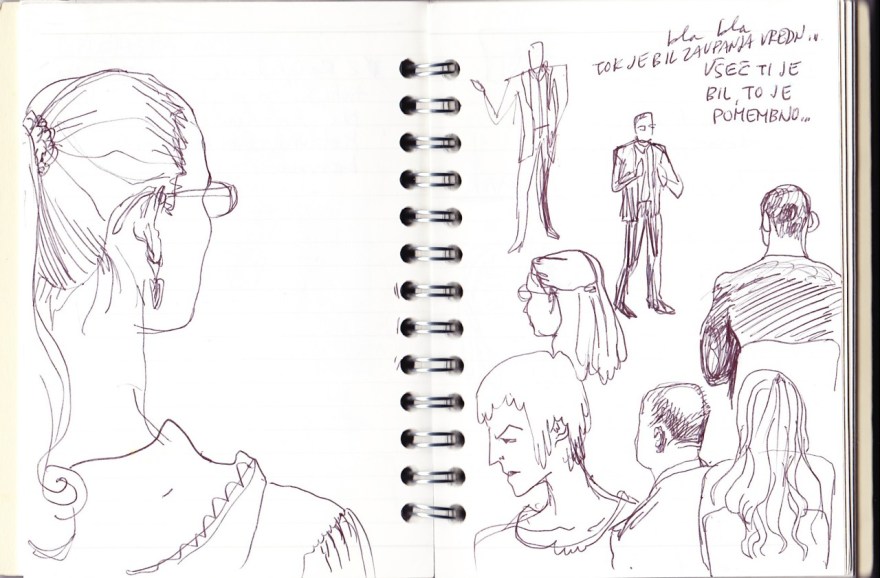 bla bla
TOK JE BIL ZAUPANJA VREDN...
VŠEČ TI JE
BIL, TO JE
POMEMBNO...